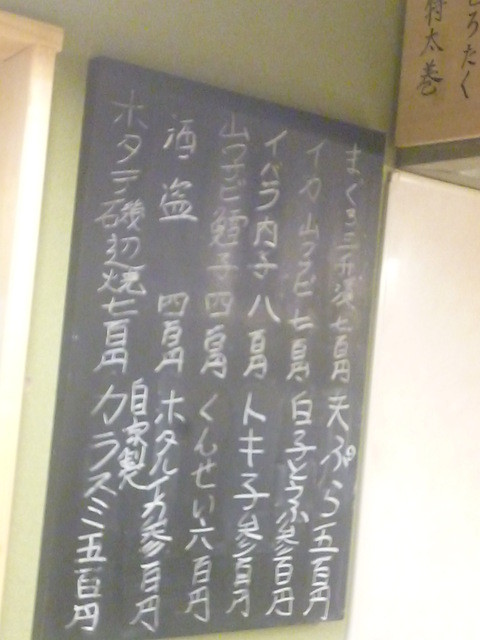 とろたく
特太巻
まぐろ三升漬七百円
イカ山ワサビ七百円
イバラ内子八百円
山ワサビ鱈子四百円
酒盗四百円
ホタテ磯辺焼七百円
天ぷら五百円
白子とうふ参百円
トキ子参百円
くんせい六百円
ホタルイカ参百円
自家製
カラスミ五百円